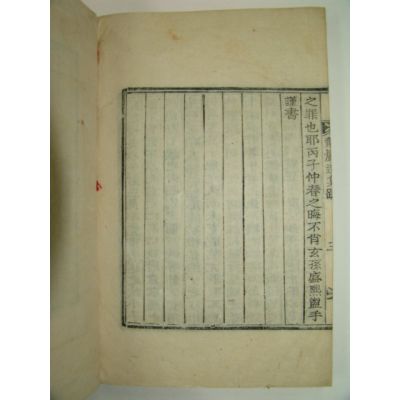 之罪也耶丙子仲春之晦不肖玄孫盛熙盥手
謹書